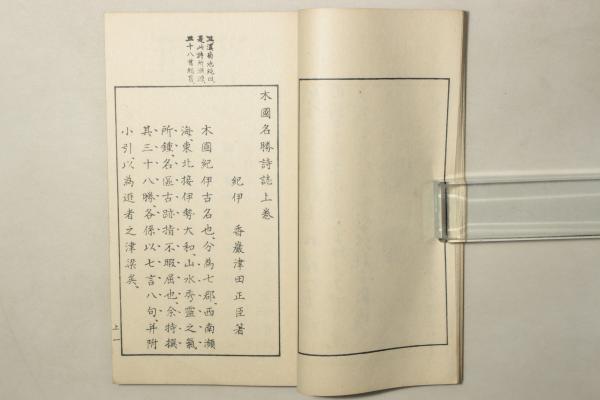 木國名勝詩誌上卷
紀伊　香巖津田正臣著
木國紀伊古名也、分為七郡、西南瀕
海、東北接伊勢大和、山水秀靈之氣
所鍾、名區古跡指不暇屈也、余特撰
其三十八勝、各係以七言八句、并附
小引、以為遊者之津梁矣、
上一